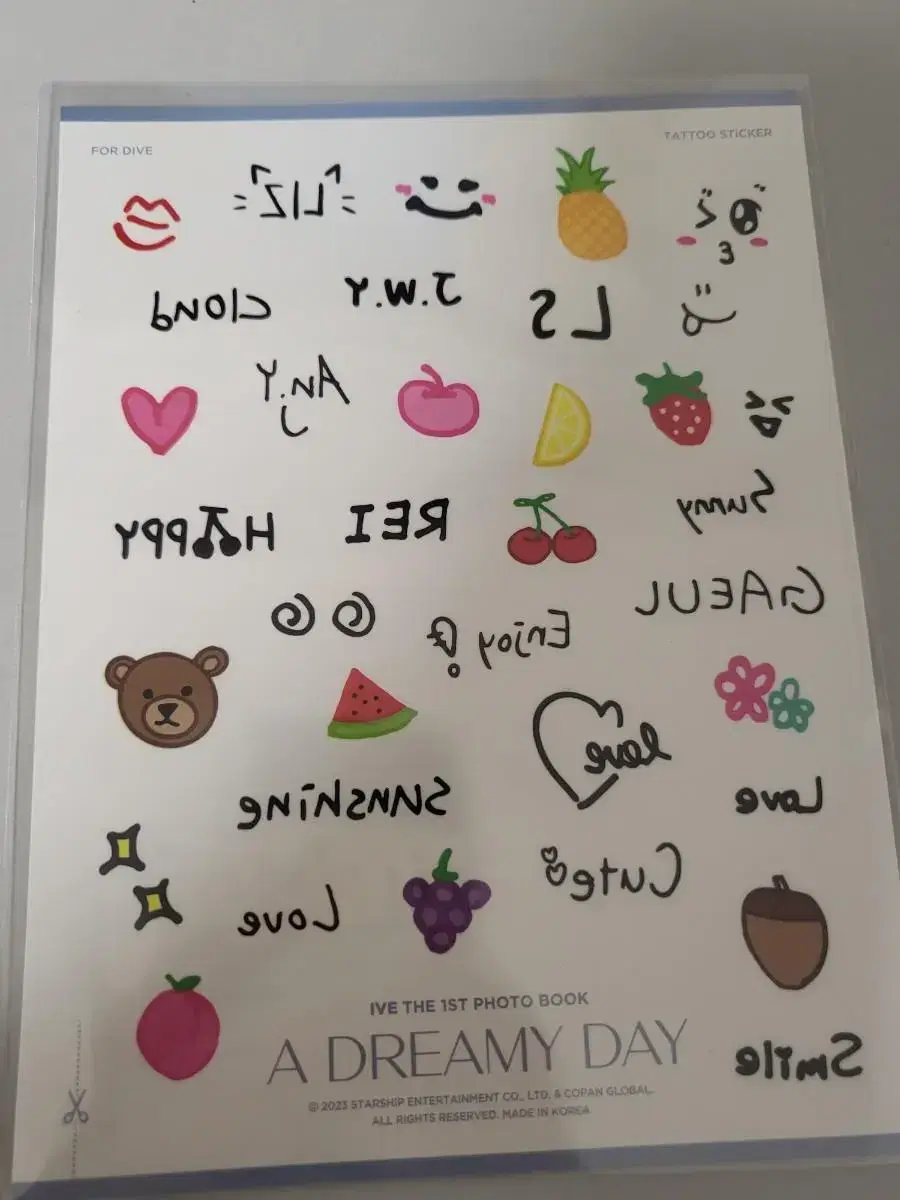 FOR DIVE
TATTOO STICKER
LIZ
J.W.Y
cloud
LS
An.Y.J
Sunny
REI
HAPPY
GAEUL
Enjoy!
love
Sunshine
Love
Cute
Love
IVE THE 1ST PHOTO BOOK
A DREAMY DAY
Smile
© 2023 STARSHIP ENTERTAINMENT CO., LTD. & COPAN GLOBAL.
ALL RIGHTS RESERVED. MADE IN KOREA